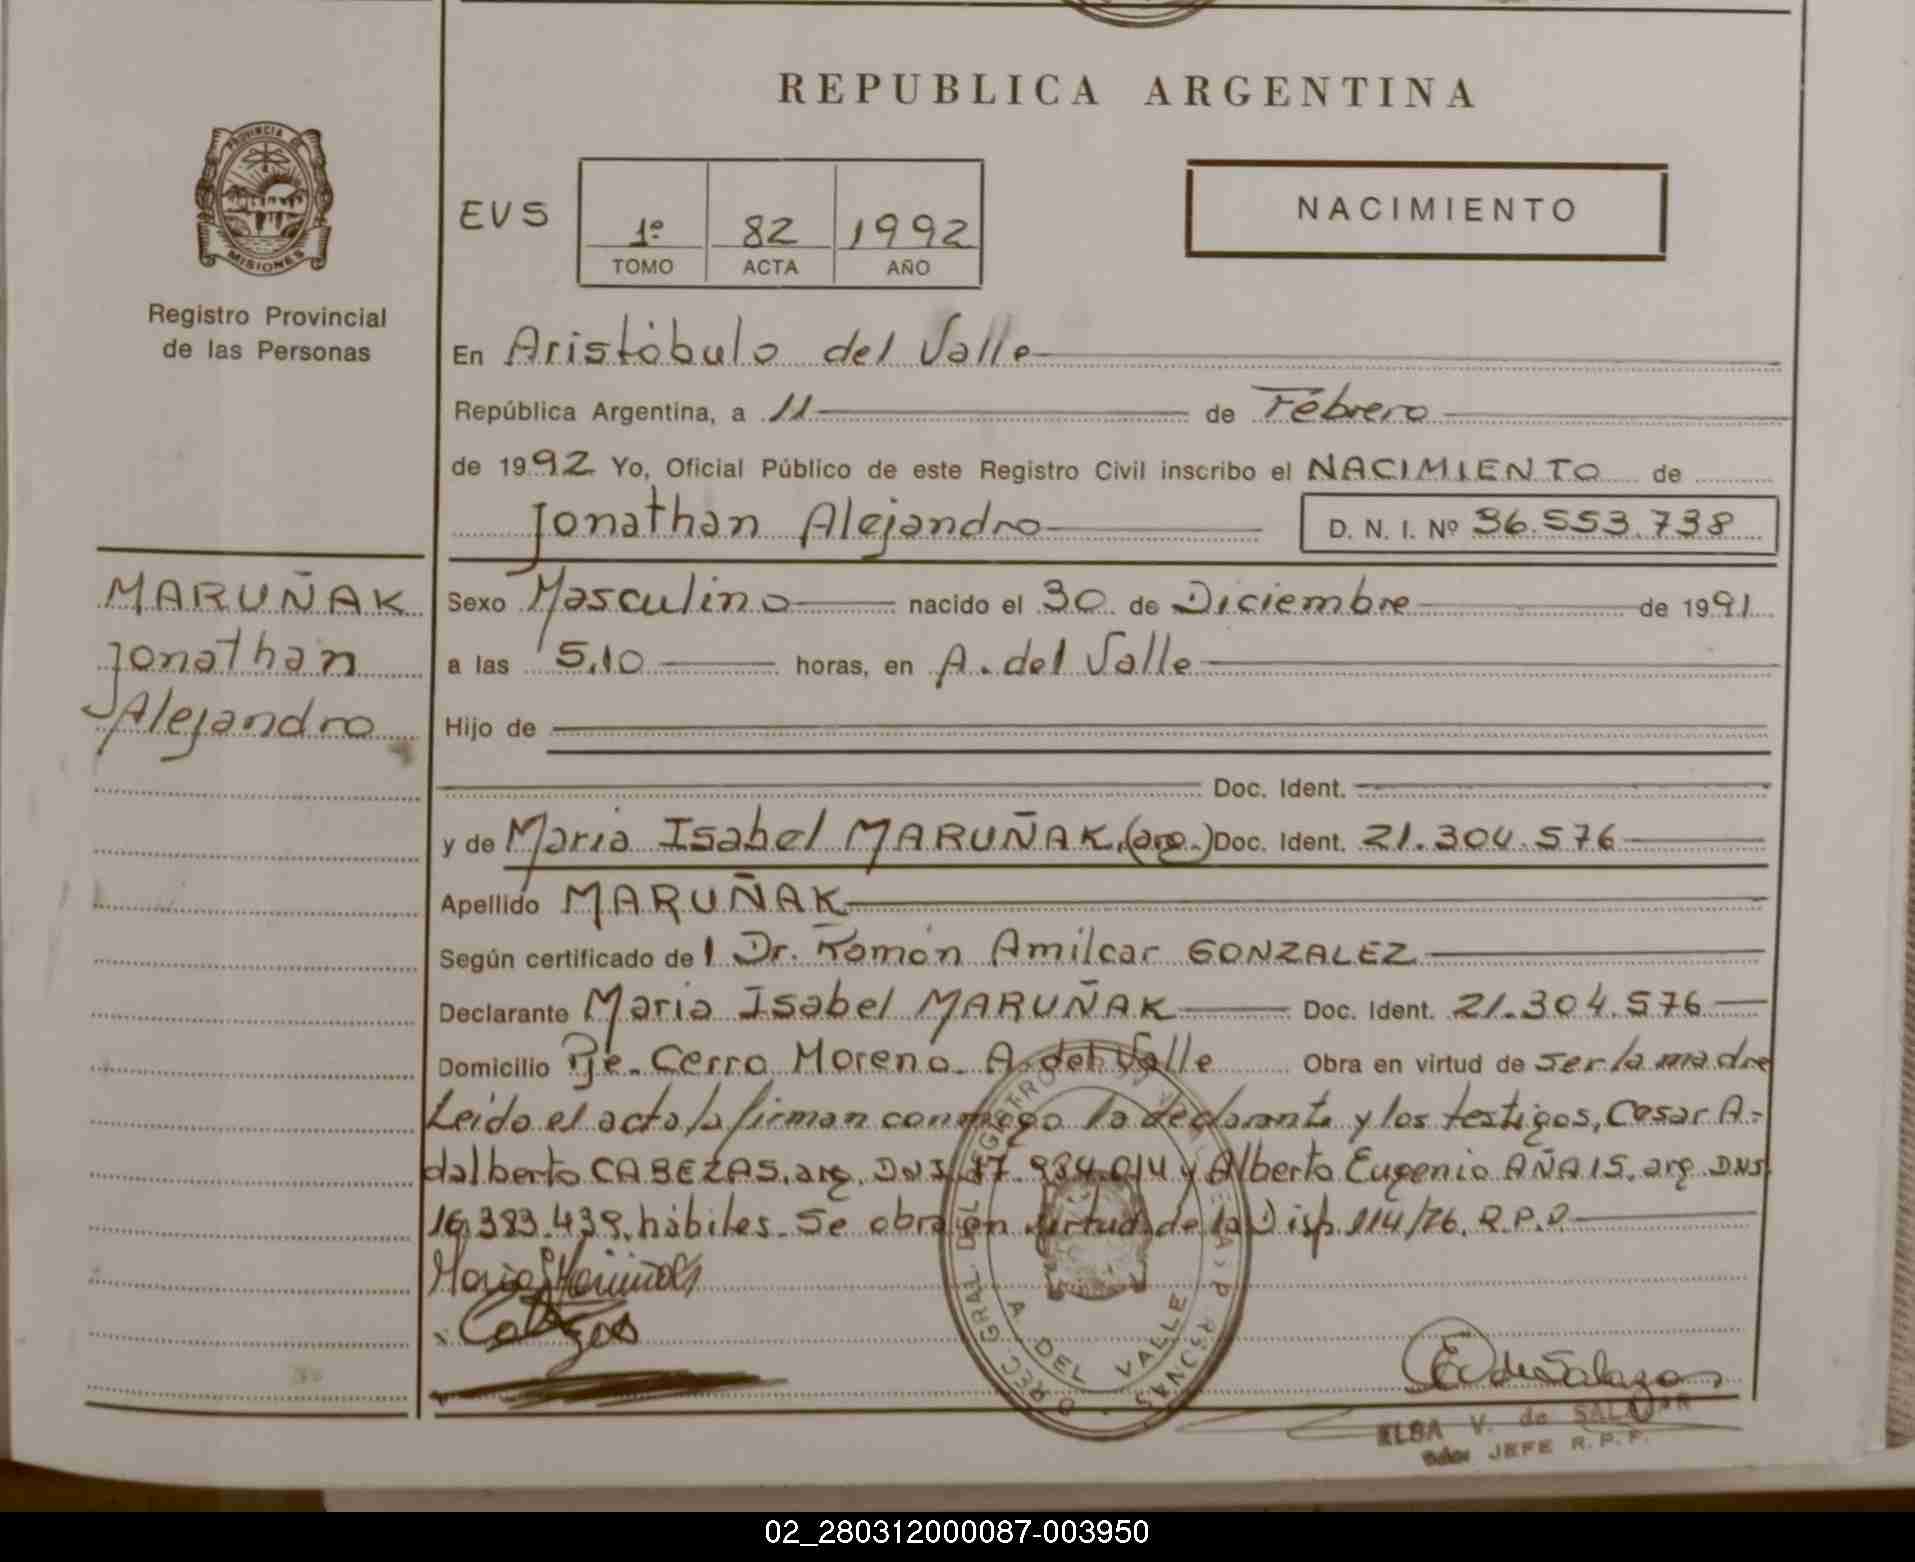 REPUBLICA ARGENTINA
PROVINCIA DE
MISIONES
Registro Provincial
de las Personas
EVS
1º 82 1992
TOMO ACTA AÑO
NACIMIENTO
En Aristóbulo del Valle
República Argentina, a 11 de Febrero
de 1992 Yo, Oficial Público de este Registro Civil inscribo el NACIMIENTO de
Jonathan Alejandro D. N. I. Nº 36.553.738
MARUÑAK
Jonathan
Alejandro
Sexo Masculino nacido el 30 de Diciembre de 1991
a las 5.10 horas, en A. del Valle
Hijo de
Doc. Ident.
y de Maria Isabel MARUÑAK, (arg.) Doc. Ident. 21.304.576
Apellido MARUÑAK
Según certificado del Dr. Ramón Amilcar GONZALEZ
Declarante Maria Isabel MARUÑAK Doc. Ident. 21.304.576
Domicilio Pje. Cerro Moreno. A. del Valle Obra en virtud de ser la madre
Leida el acta la firman conmigo la declarante y los testigos, Cesar A-
dalberto CABEZAS, arg. DNI 17.984.014 y Alberto Eugenio AÑAIS, arg. DNI
16.383.439, hábiles. Se obra en virtud de la Disp. 114/76. R.P.P.
DIREC. GRAL. DEL REGISTRO
A DEL VALLE
E de Salazar
ELBA V. de SALAZAR
JEFE R.P.P.
02_280312000087-003950